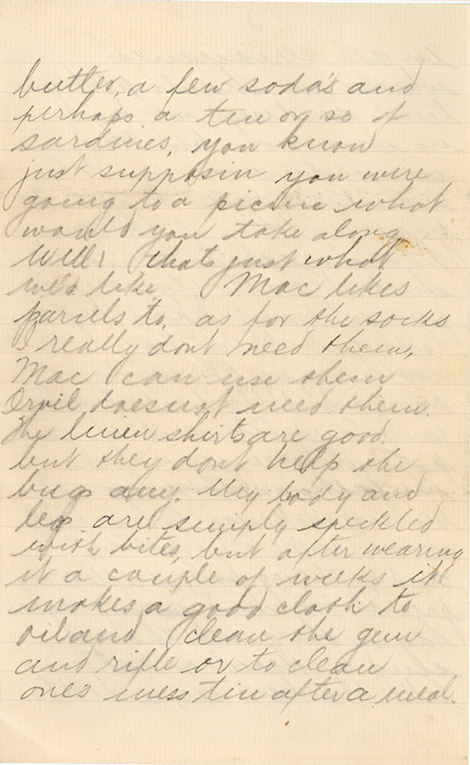 butter, a few soda's and
perhaps a tin or so of
sardines, you know
just supposin you were
going to a picnic what
would you take along
Well! thats just what
we'd like Mac likes
parcels to, as for the socks
I really dont need them,
Mac can use them
Orvil doesnt need them.
The linen shirts are good.
but they dont help the
bugs any. My body and
legs are simply speckled
with bites, but after wearing
it a couple of weeks it
makes a good cloth to
oil and clean the gun
and rifle or to clean
one's mess tin after a meal.